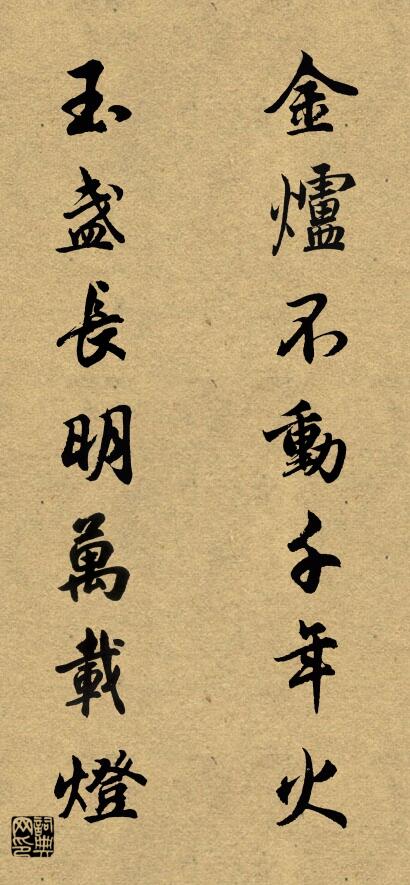 金爐不動千年火
玉盞長明萬載燈
詞典网印